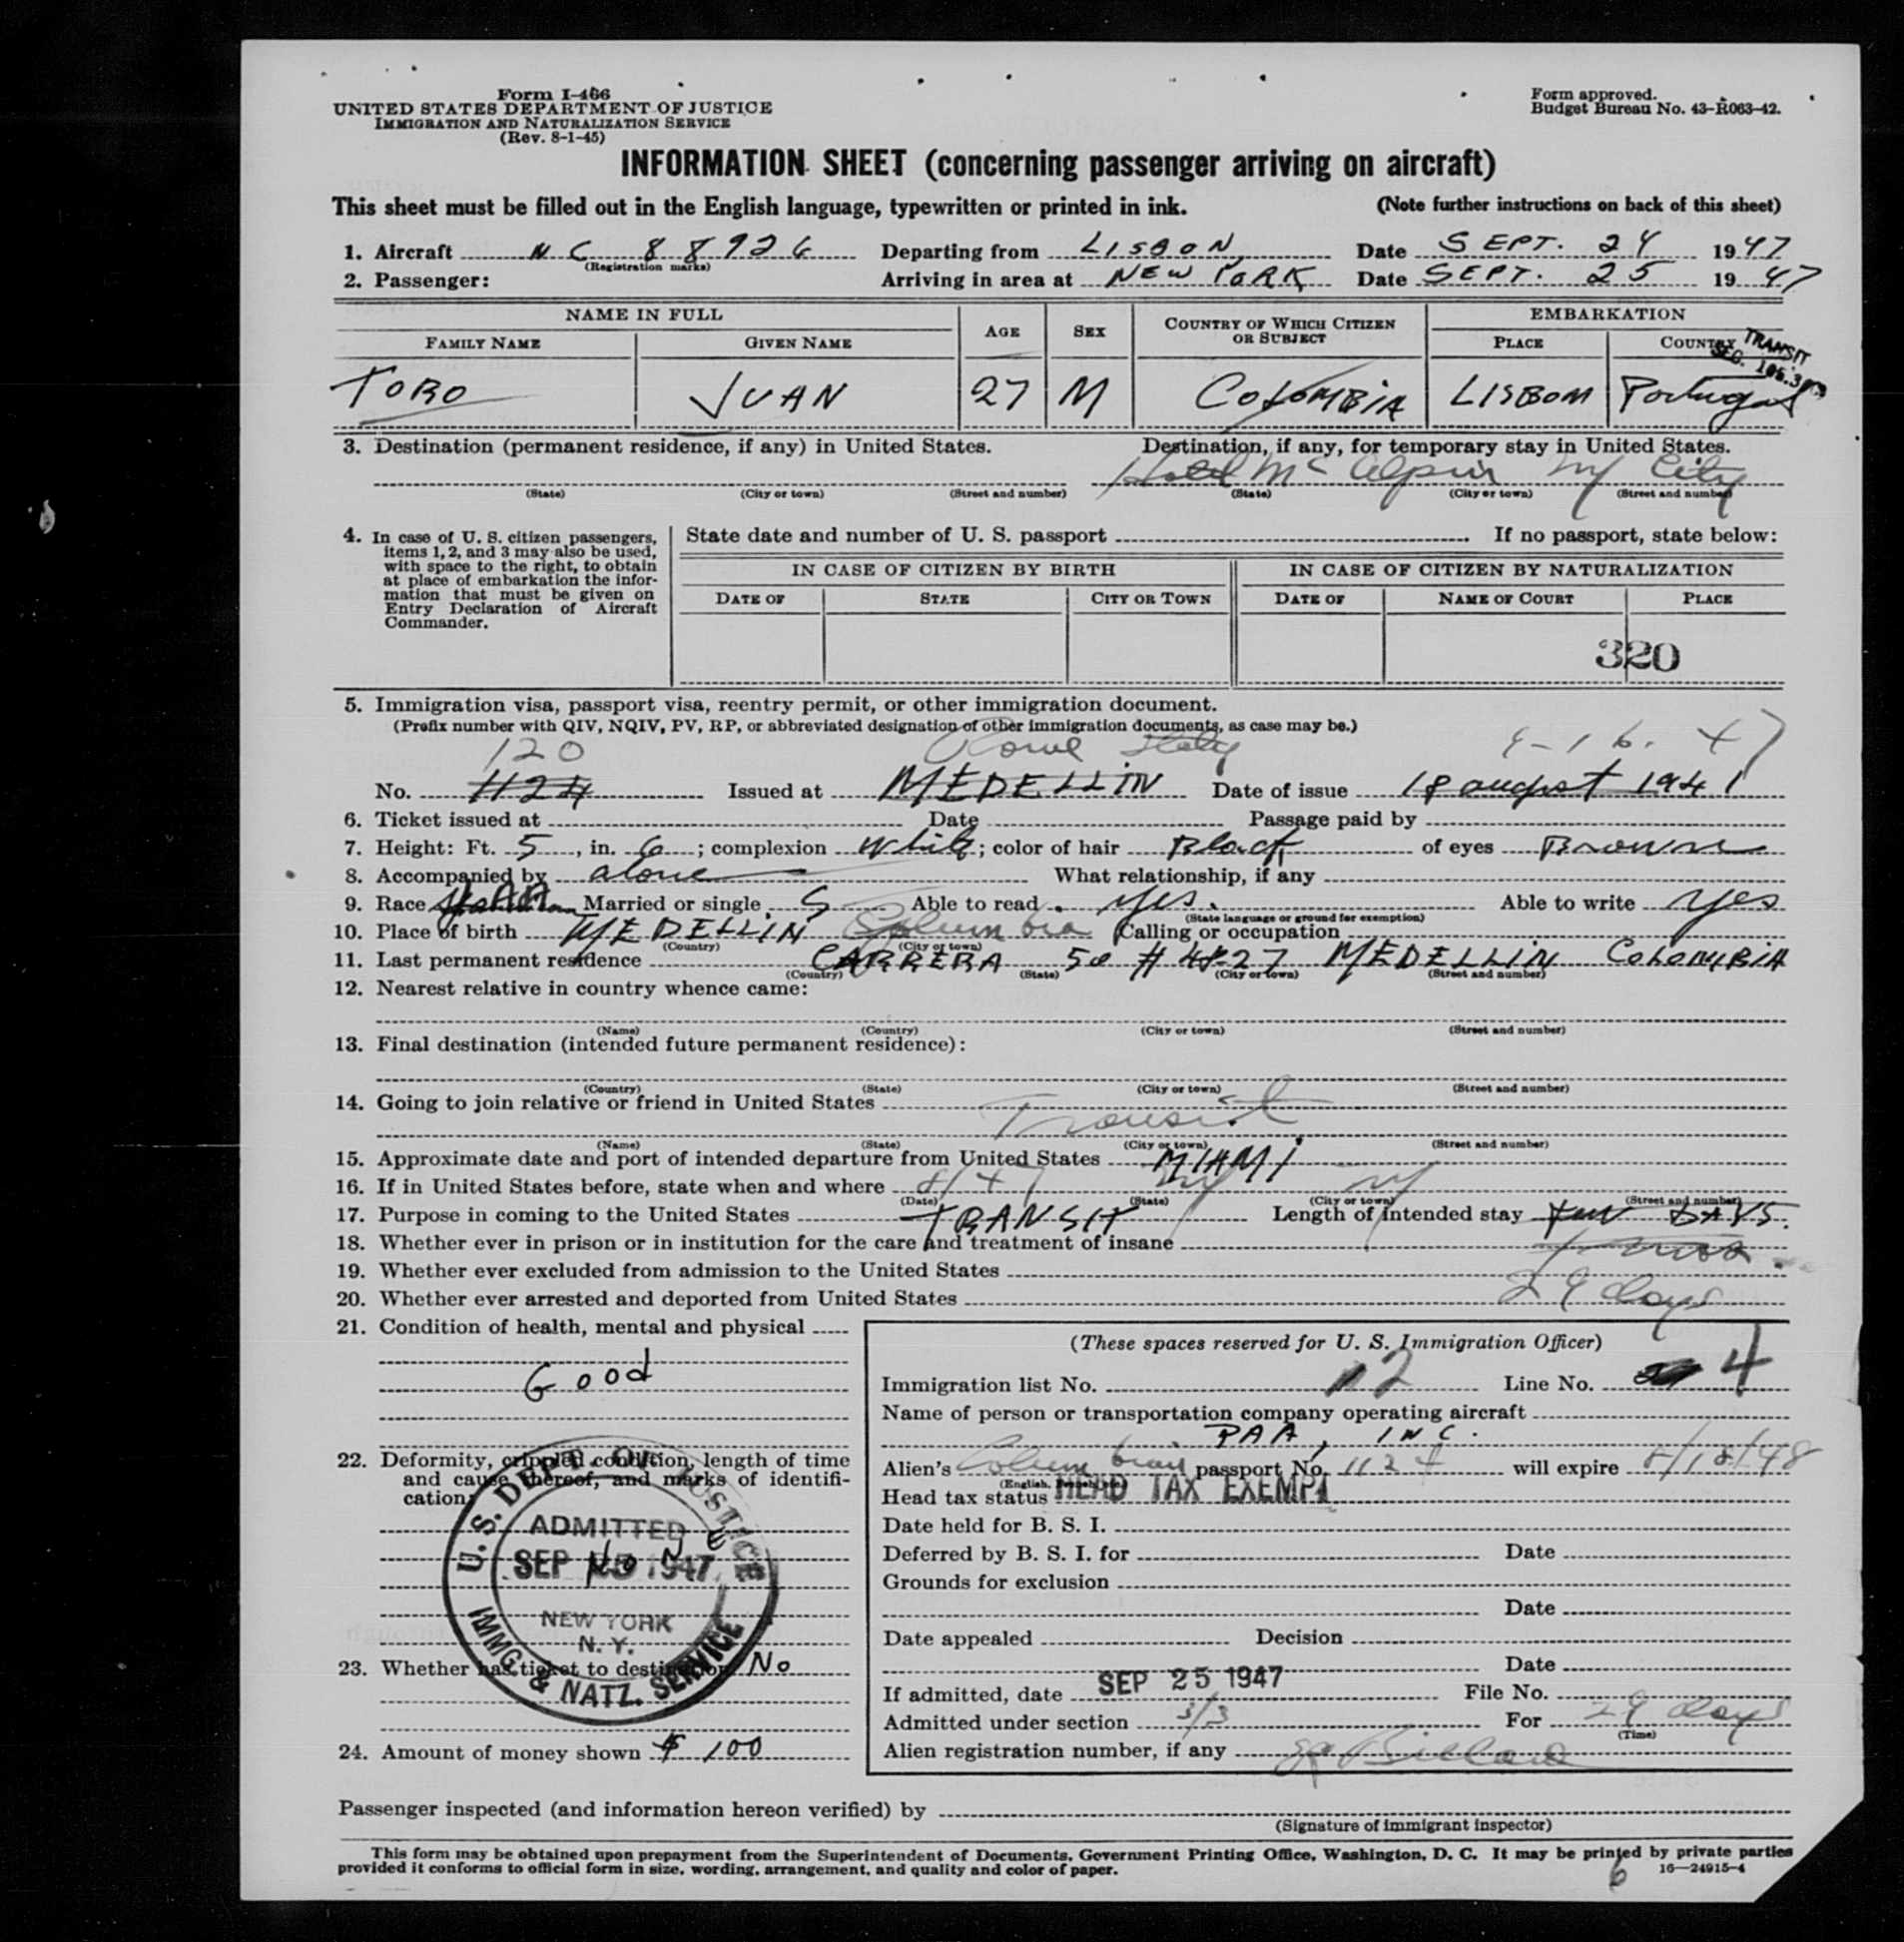 Form I-466
UNITED STATES DEPARTMENT OF JUSTICE
IMMIGRATION AND NATURALIZATION SERVICE
(Rev. 8-1-45)
Form approved.
Budget Bureau No. 43-R063-42.
INFORMATION SHEET (concerning passenger arriving on aircraft)
This sheet must be filled out in the English language, typewritten or printed in ink. (Note further instructions on back of this sheet)
1. Aircraft NC 88926 Departing from LISBON Date SEPT. 24 1947
(Registration marks)
2. Passenger: Arriving in area at NEW YORK Date SEPT. 25 1947
NAME IN FULL AGE SEX COUNTRY OF WHICH CITIZEN OR SUBJECT EMBARKATION
FAMILY NAME GIVEN NAME PLACE COUNTRY
TRANSIT
TORO JUAN 27 M COLOMBIA LISBOM Portugal
3. Destination (permanent residence, if any) in United States. Destination, if any, for temporary stay in United States.
Hotel McAlpin NY City
(State) (City or town) (Street and number) (State) (City or town) (Street and number)
4. In case of U. S. citizen passengers, items 1, 2, and 3 may also be used, with space to the right, to obtain at place of embarkation the information that must be given on Entry Declaration of Aircraft Commander.
State date and number of U. S. passport If no passport, state below:
IN CASE OF CITIZEN BY BIRTH IN CASE OF CITIZEN BY NATURALIZATION
DATE OF STATE CITY OR TOWN DATE OF NAME OF COURT PLACE
320
5. Immigration visa, passport visa, reentry permit, or other immigration document.
(Prefix number with QIV, NQIV, PV, RP, or abbreviated designation of other immigration documents, as case may be.)
120 Rome Italy 9-16-47
No. 1124 Issued at MEDELLIN Date of issue 18 august 1947
6. Ticket issued at Date Passage paid by
7. Height: Ft. 5, in. 6; complexion White; color of hair Black of eyes Brown
8. Accompanied by alone What relationship, if any
9. Race Married or single S Able to read yes. Able to write yes
(State language or ground for exemption)
10. Place of birth MEDELLIN Columbia Calling or occupation
(Country) (City or town)
11. Last permanent residence CARRERA 50 # 48-27 MEDELLIN COLOMBIA
(Country) (State) (City or town) (Street and number)
12. Nearest relative in country whence came:
(Name) (Country) (City or town) (Street and number)
13. Final destination (intended future permanent residence):
(Country) (State) (City or town) (Street and number)
14. Going to join relative or friend in United States
Transit
(Name) (State) (City or town) (Street and number)
15. Approximate date and port of intended departure from United States MIAMI
16. If in United States before, state when and where 8/47 NY NY
(Date) (State) (City or town) (Street and number)
17. Purpose in coming to the United States TRANSIT Length of intended stay few DAYS.
18. Whether ever in prison or in institution for the care and treatment of insane
19. Whether ever excluded from admission to the United States
29 days
20. Whether ever arrested and deported from United States
21. Condition of health, mental and physical
Good
22. Deformity, crippled condition, length of time and cause thereof, and marks of identification
None
U. S. DEPT. OF JUSTICE
ADMITTED
SEP 25 1947
NEW YORK
N. Y.
IMMG. & NATZ. SERVICE
23. Whether has ticket to destination No
24. Amount of money shown $ 100
(These spaces reserved for U. S. Immigration Officer)
Immigration list No. 12 Line No. 4
Name of person or transportation company operating aircraft
PAA, INC.
Alien's Columbian passport No. 1124 will expire 8/18/48
Head tax status HEAD TAX EXEMPT
Date held for B. S. I.
Deferred by B. S. I. for Date
Grounds for exclusion
Date
Date appealed Decision
Date
If admitted, date SEP 25 1947 File No.
Admitted under section 3/3 For 29 days
(Time)
Alien registration number, if any
Passenger inspected (and information hereon verified) by
(Signature of immigrant inspector)
This form may be obtained upon prepayment from the Superintendent of Documents, Government Printing Office, Washington, D. C. It may be printed by private parties
provided it conforms to official form in size, wording, arrangement, and quality and color of paper.
6
16—24915-4